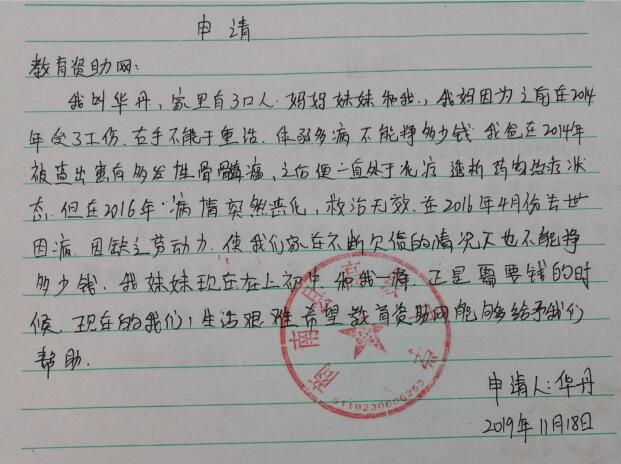 申请
教育资助网:
我叫华丹,家里有3口人.妈妈妹妹和我.,我妈因为之前在2014
年受了工伤.右手不能干重活.体弱多病不能挣多少钱.我爸在2014年
被查出患有多发性骨髓瘤,之后便一直处于化疗 透析 药物治疗状
态.但在2016年.病情突然恶化,救治无效.在2016年4月份去世
因病.因缺乏劳动力.使我们家在不断欠债的情况下也不能挣
多少钱.我妹妹现在在上初中.和我一样.正是需要钱的时
候.现在的我们,生活艰难希望教育资助网能够给予我们
帮助.
商南县高级中学
6110230000253
申请人:华丹
2019年11月18日